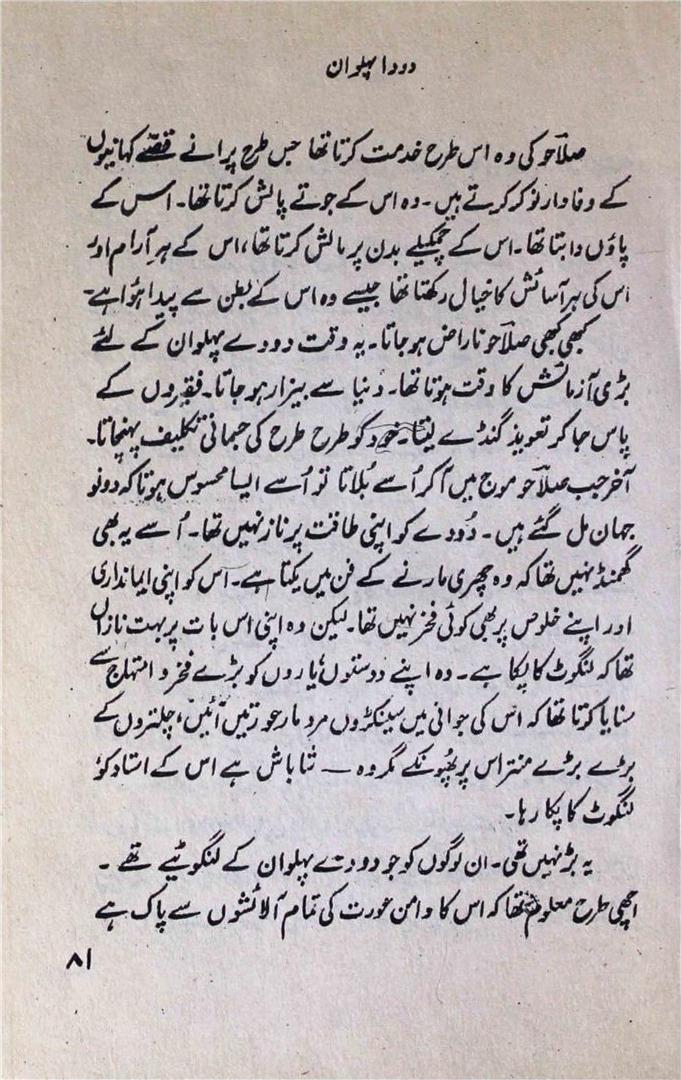 دودا پہلوان
صلاحو کی وہ اس طرح خدمت کرتا تھا جس طرح پرانے قصّے کہانیوں
کے وفادار نوکر کرتے ہیں۔ وہ اس کے جوتے پالش کرتا تھا۔ اس کے
پاؤں دابتا تھا۔ اس کے چمکیلے بدن پر مالش کرتا تھا، اس کے ہر آرام اور
اس کی ہر آسائش کا خیال رکھتا تھا جیسے وہ اس کے بطن سے پیدا ہوا ہے۔
کبھی کبھی صلاحو ناراض ہو جاتا۔ یہ وقت دودے پہلوان کے لئے
بڑی آزمائش کا وقت ہوتا تھا۔ دُنیا سے بیزار ہو جاتا۔ فقیروں کے
پاس جا کر تعویذ گنڈے لیتا۔ خود کو طرح طرح کی جسمانی تکلیف پہنچاتا۔
آخر جب صلاحو موج میں آ کر اُسے بُلاتا تو اُسے ایسا محسوس ہوتا کہ دونو
جہان مل گئے ہیں۔ دُودے کو اپنی طاقت پر ناز نہیں تھا۔ اُسے یہ بھی
گھمنڈ نہیں تھا کہ وہ چھری مارنے کے فن میں یکتا ہے۔ اس کو اپنی ایمانداری
اور اپنے خلوص پر بھی کوئی فخر نہیں تھا۔ لیکن وہ اپنی اس بات پر بہت نازاں
تھا کہ لنگوٹ کا پکا ہے۔ وہ اپنے دوستوں یاروں کو بڑے فخر و ابتہاج سے
سنایا کرتا تھا کہ اس کی جوانی میں سینکڑوں مرد مار عورتیں آئیں، چلتروں کے
بڑے بڑے منتر اس پر پھُونکے مگر وہ — شاباش ہے اس کے استاد کو
لنگوٹ کا پکا رہا۔
یہ بڑ نہیں تھی۔ ان لوگوں کو جو دودے پہلوان کے لنگوٹیے تھے۔
اچھی طرح معلوم تھا کہ اس کا دامن عورت کی تمام آلائشوں سے پاک ہے
۸۱